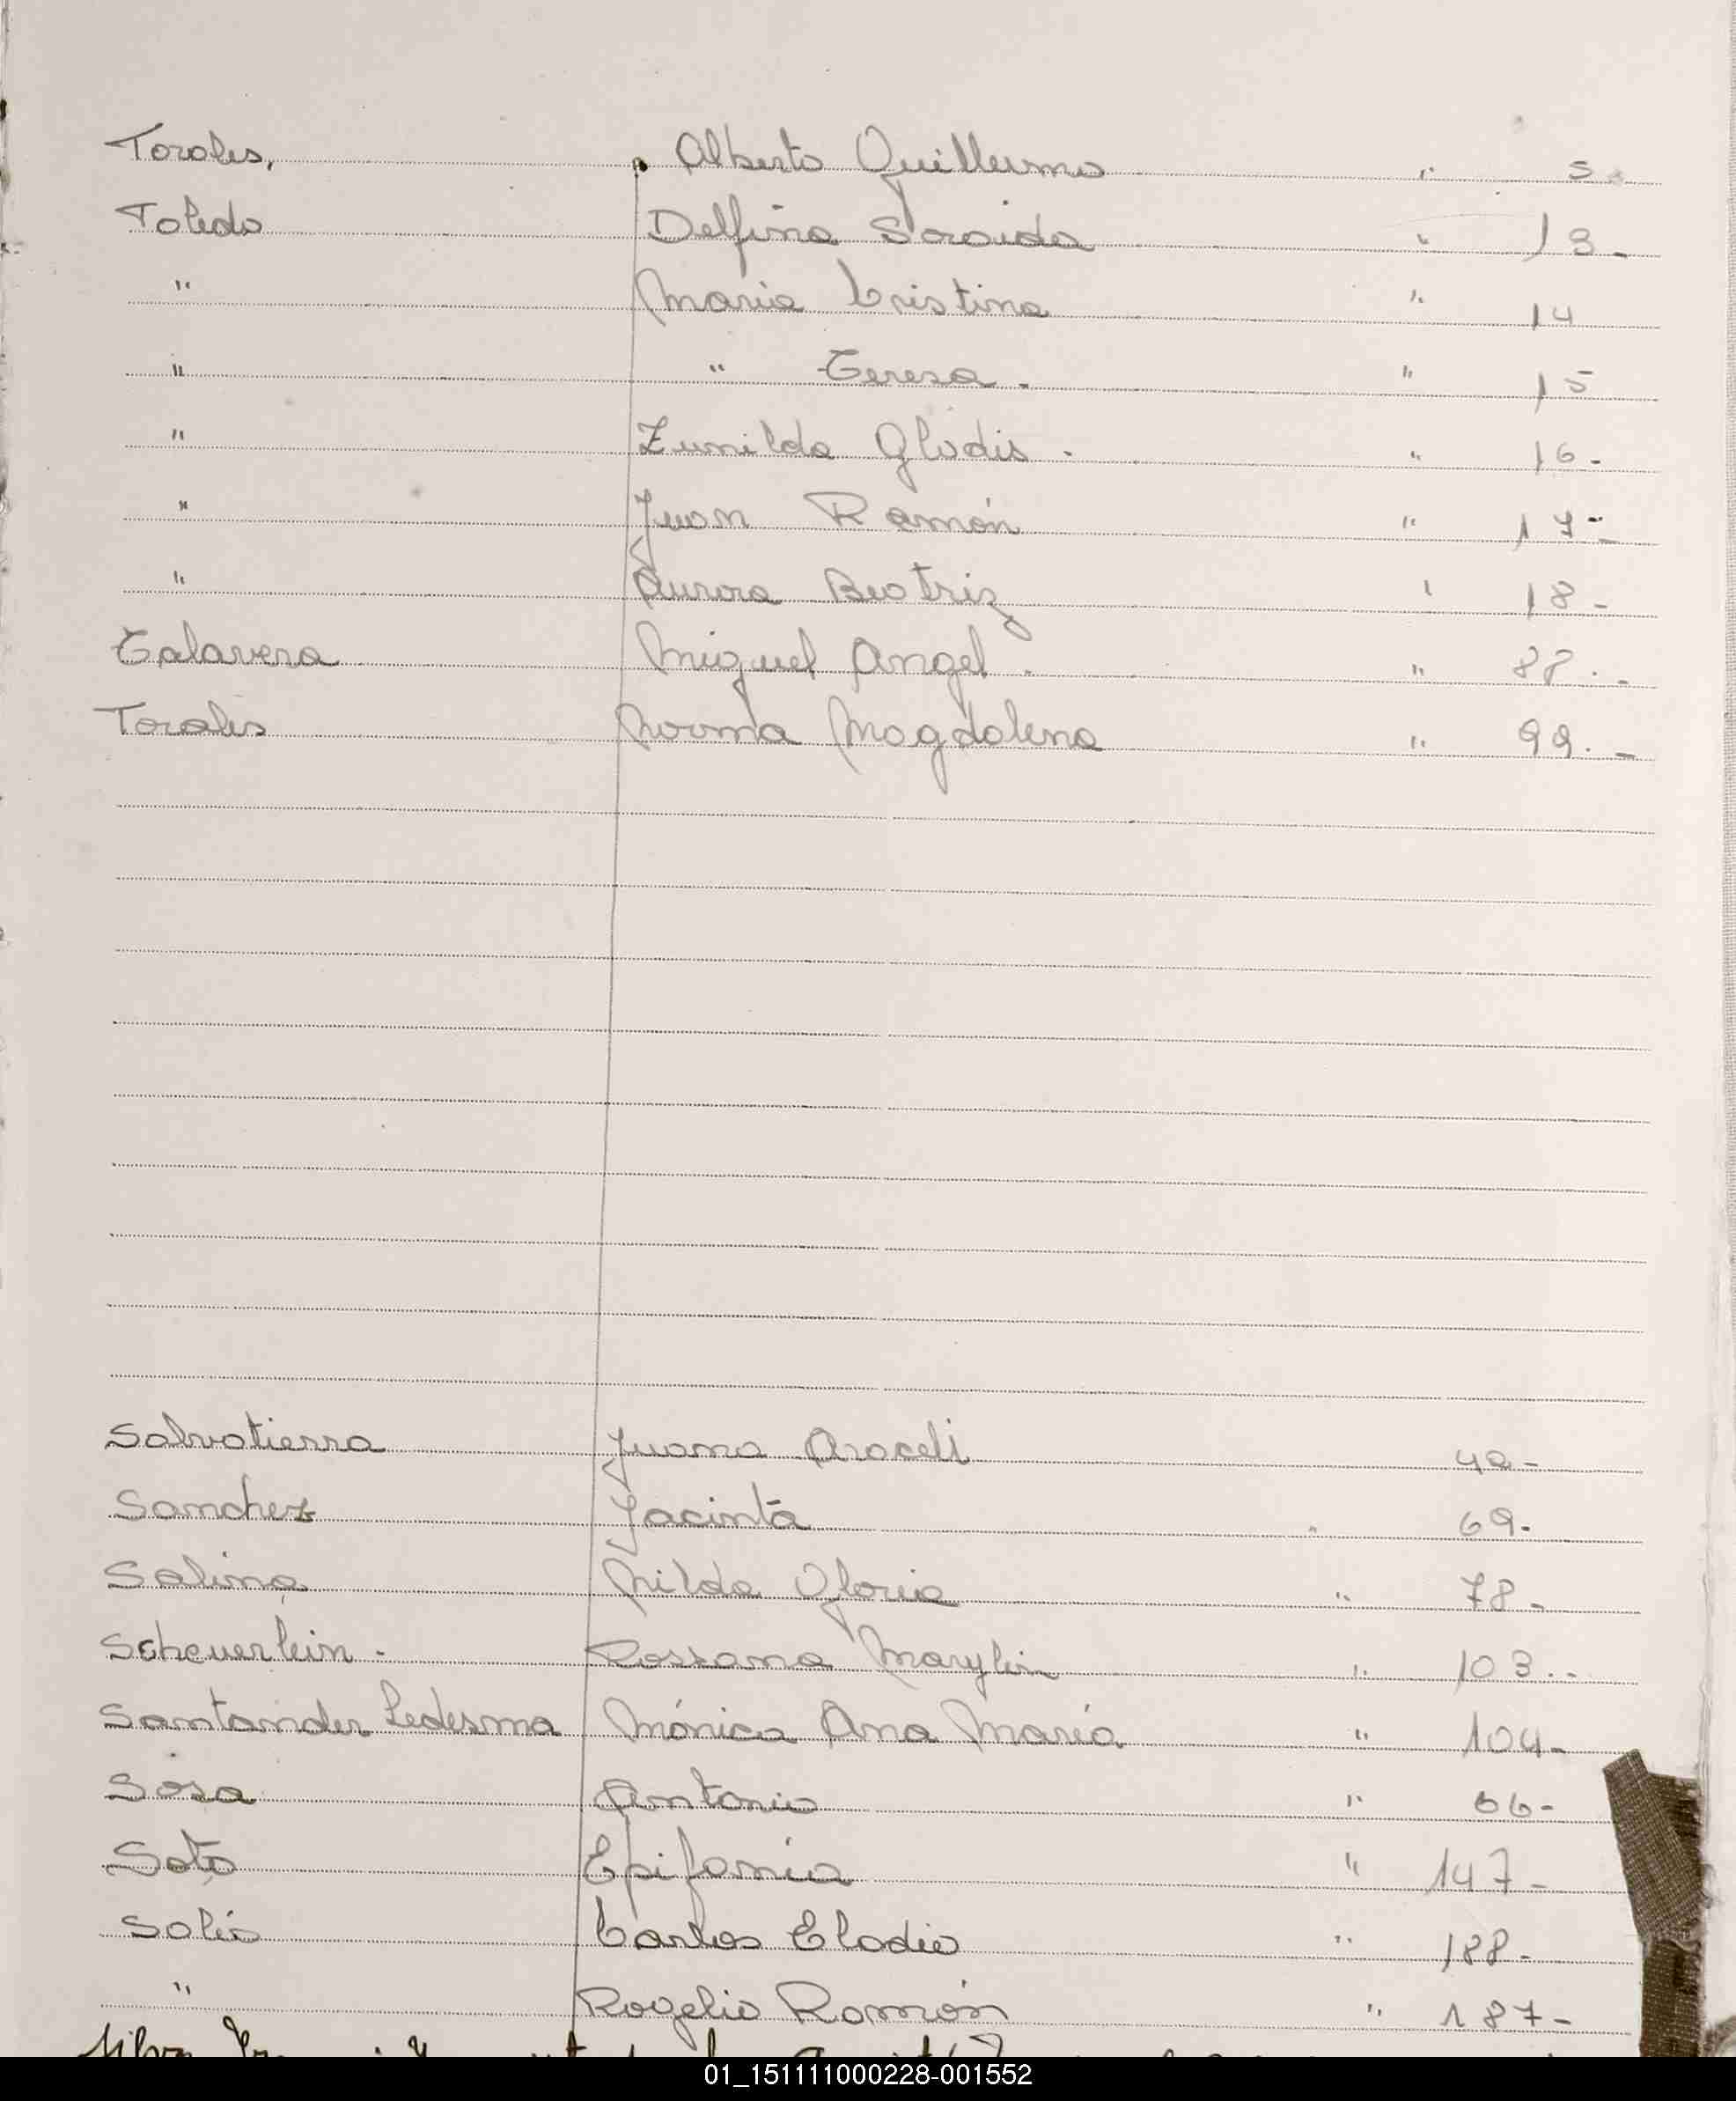 Torales, Alberto Guillermo " 5
Toledo Delfina Soraida " 13-
" Maria Cristina " 14
" " Teresa. " 15
" Zunilda Gladis. " 16-
" Juan Ramón " 17-
" Aurora Beatriz " 18-
Talavera Miguel Angel. " 88.-
Torales Norma Magdalena " 99.-
Salvatierra Juana Araceli
Sanchez Jacinta 69.
Salina Nilda Gloria " 78-
Scheuerlein. Rossana Marylin " 103.-
Santander Ledesma Mónica Ana María " 104-
Sosa Antonio " 66-
Soto Epifania " 147-
Solís Carlos Eladio " 188-
" Rogelio Ramón " 187-
Silva
01_151111000228-001552